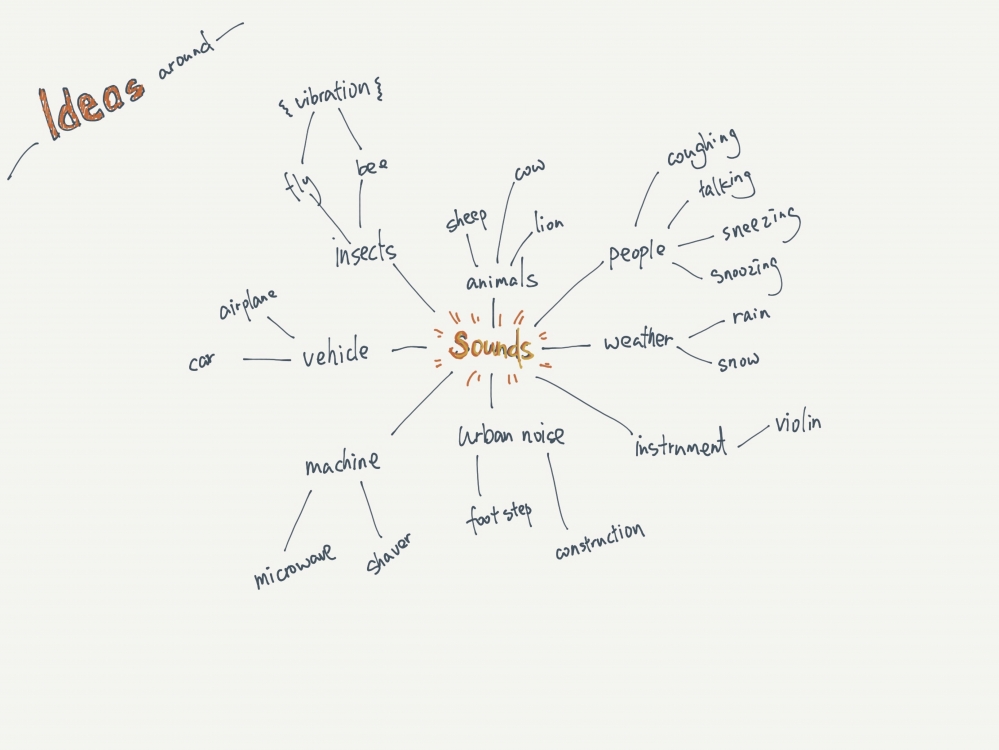 Ideas around
{ vibration }
fly
bee
insects
sheep
cow
lion
animals
coughing
talking
sneezing
snoozing
people
airplane
car
vehicle
Sounds
weather
rain
snow
machine
microwave
shaver
Urban noise
foot step
construction
instrument
violin